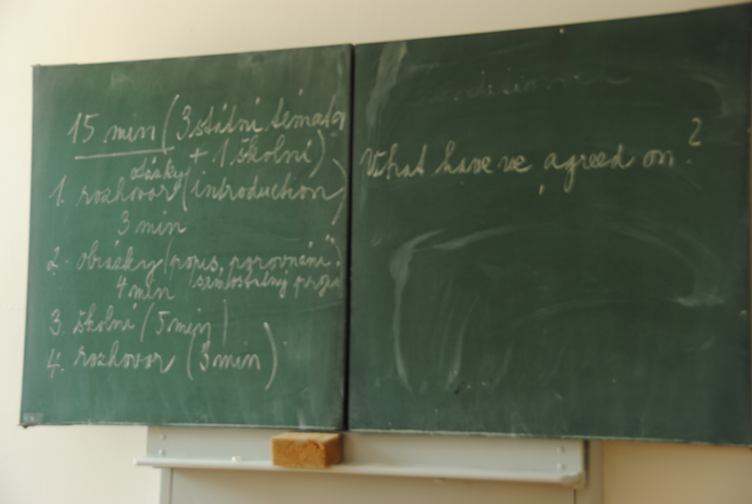 15 min (3 státní témata
+ 1 školní)
otázky
1. rozhovor (introduction)
3 min
2. obrázky (popis, porovnání)
4 min (samostatný
3. školní (5 min)
4. rozhovor (3 min)
What have we agreed on?